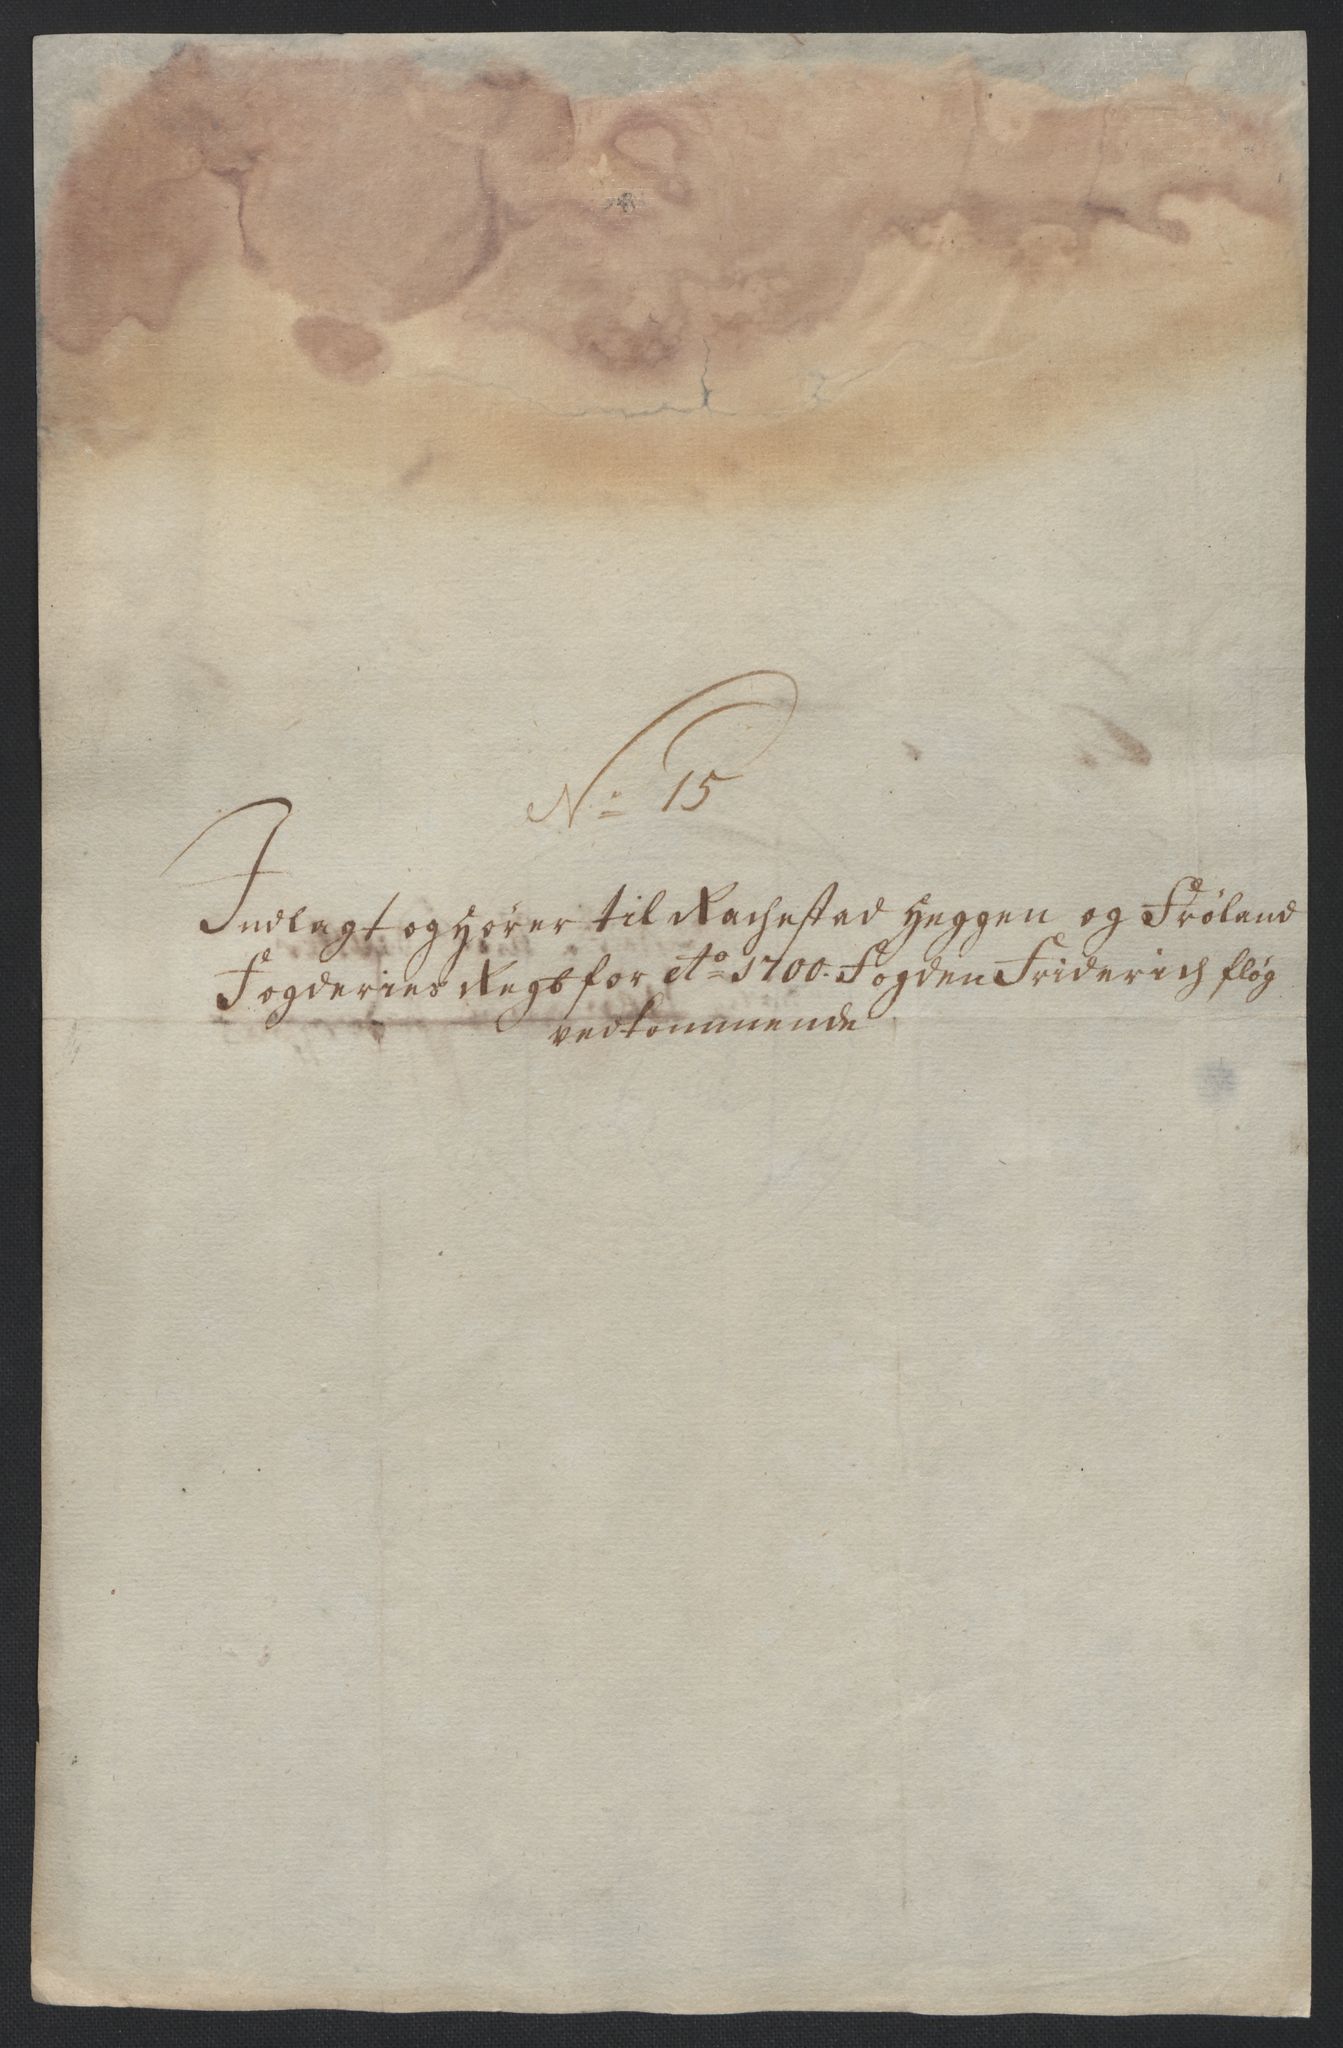 No 15
Indlagt og hører til Rachestad Heggen og Frøland
Fogderies Regs for Ao 1700. Fogden Friderich fløg
vedkommende